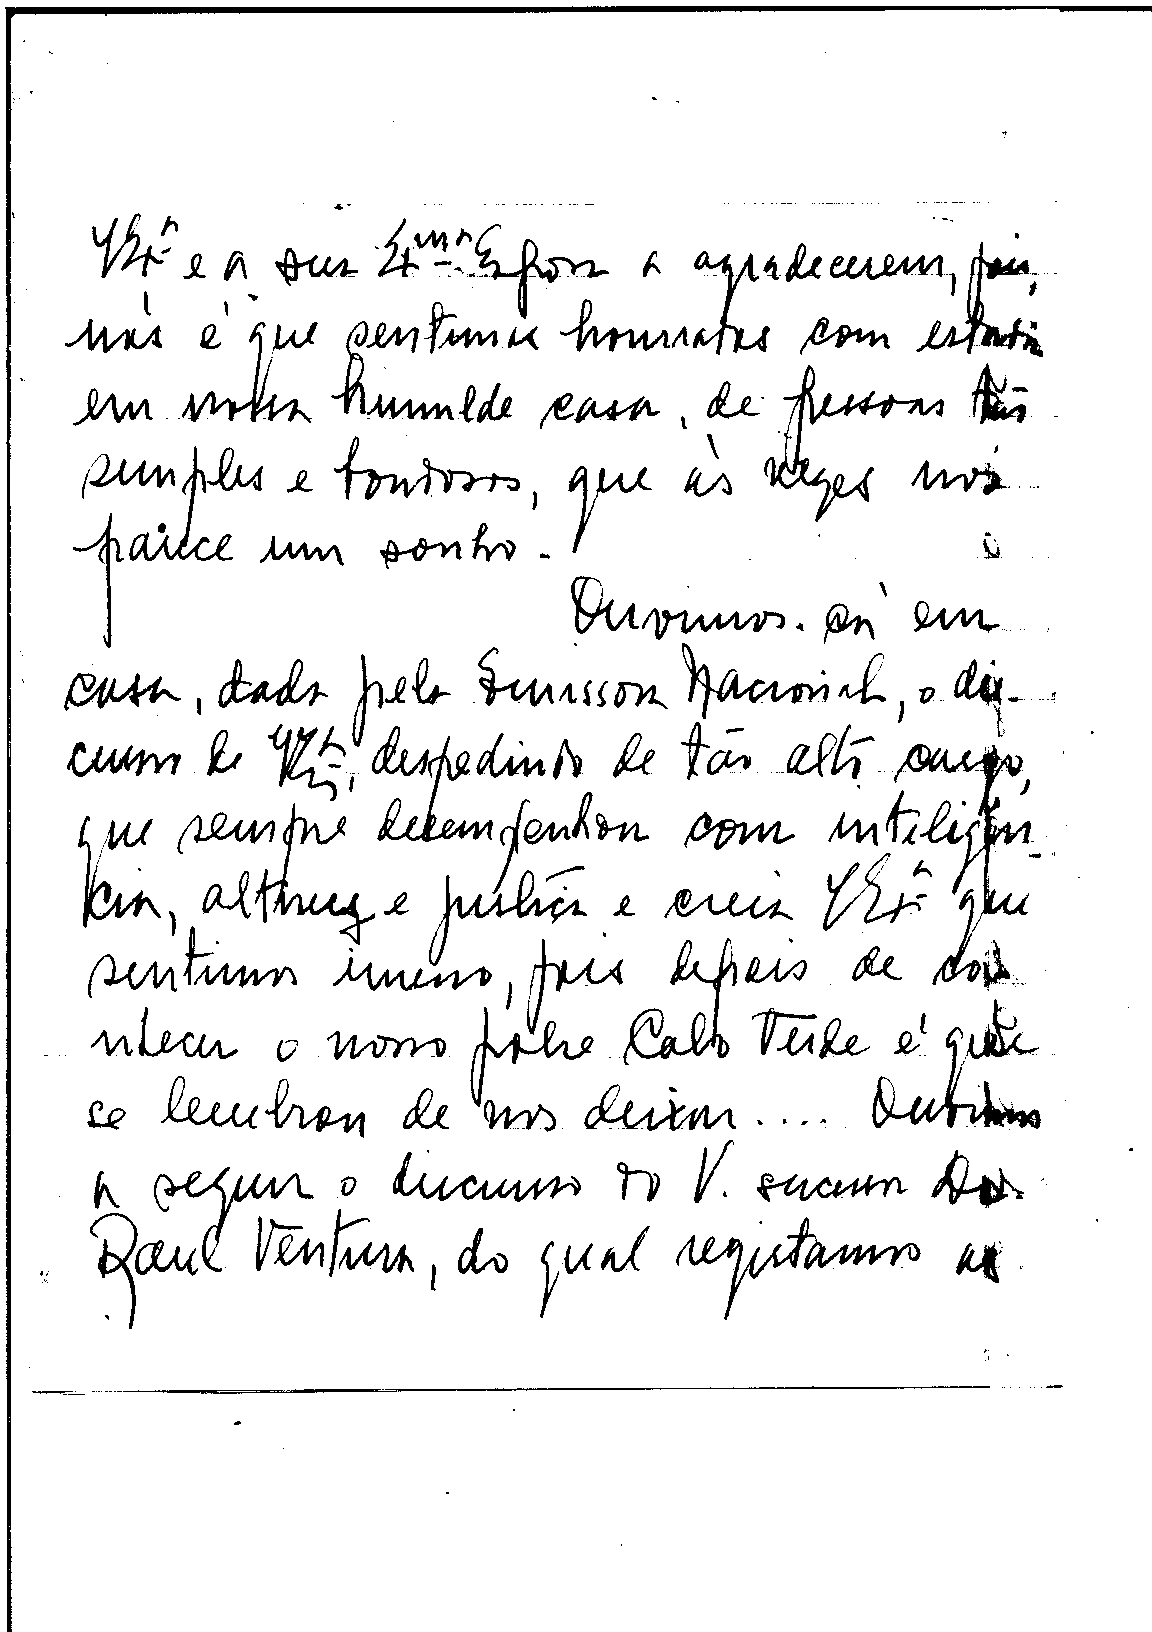 VExª e a sua Exmª Esposa a agradecerem, pois,
nós é que sentimos honrados com estadia
em nossa humilde casa, de pessoas tão
simples e bondosos, que às vezes nos
parece um sonho.
Ouvimos cá em
casa, dada pela Emissora Nacional, o dis-
curso de VExª, despedindo de tão alto cargo,
que sempre desempenhou com inteligên-
cia, altivez e justiça e creia VExª que
sentimos imenso, pois depois de co-
nhecer o nosso pobre Cabo Verde é que
se lembrou de nos deixar.... Ouvimos
a seguir o discurso do V. sucessor Dr.
Raul Ventura, do qual registamos as